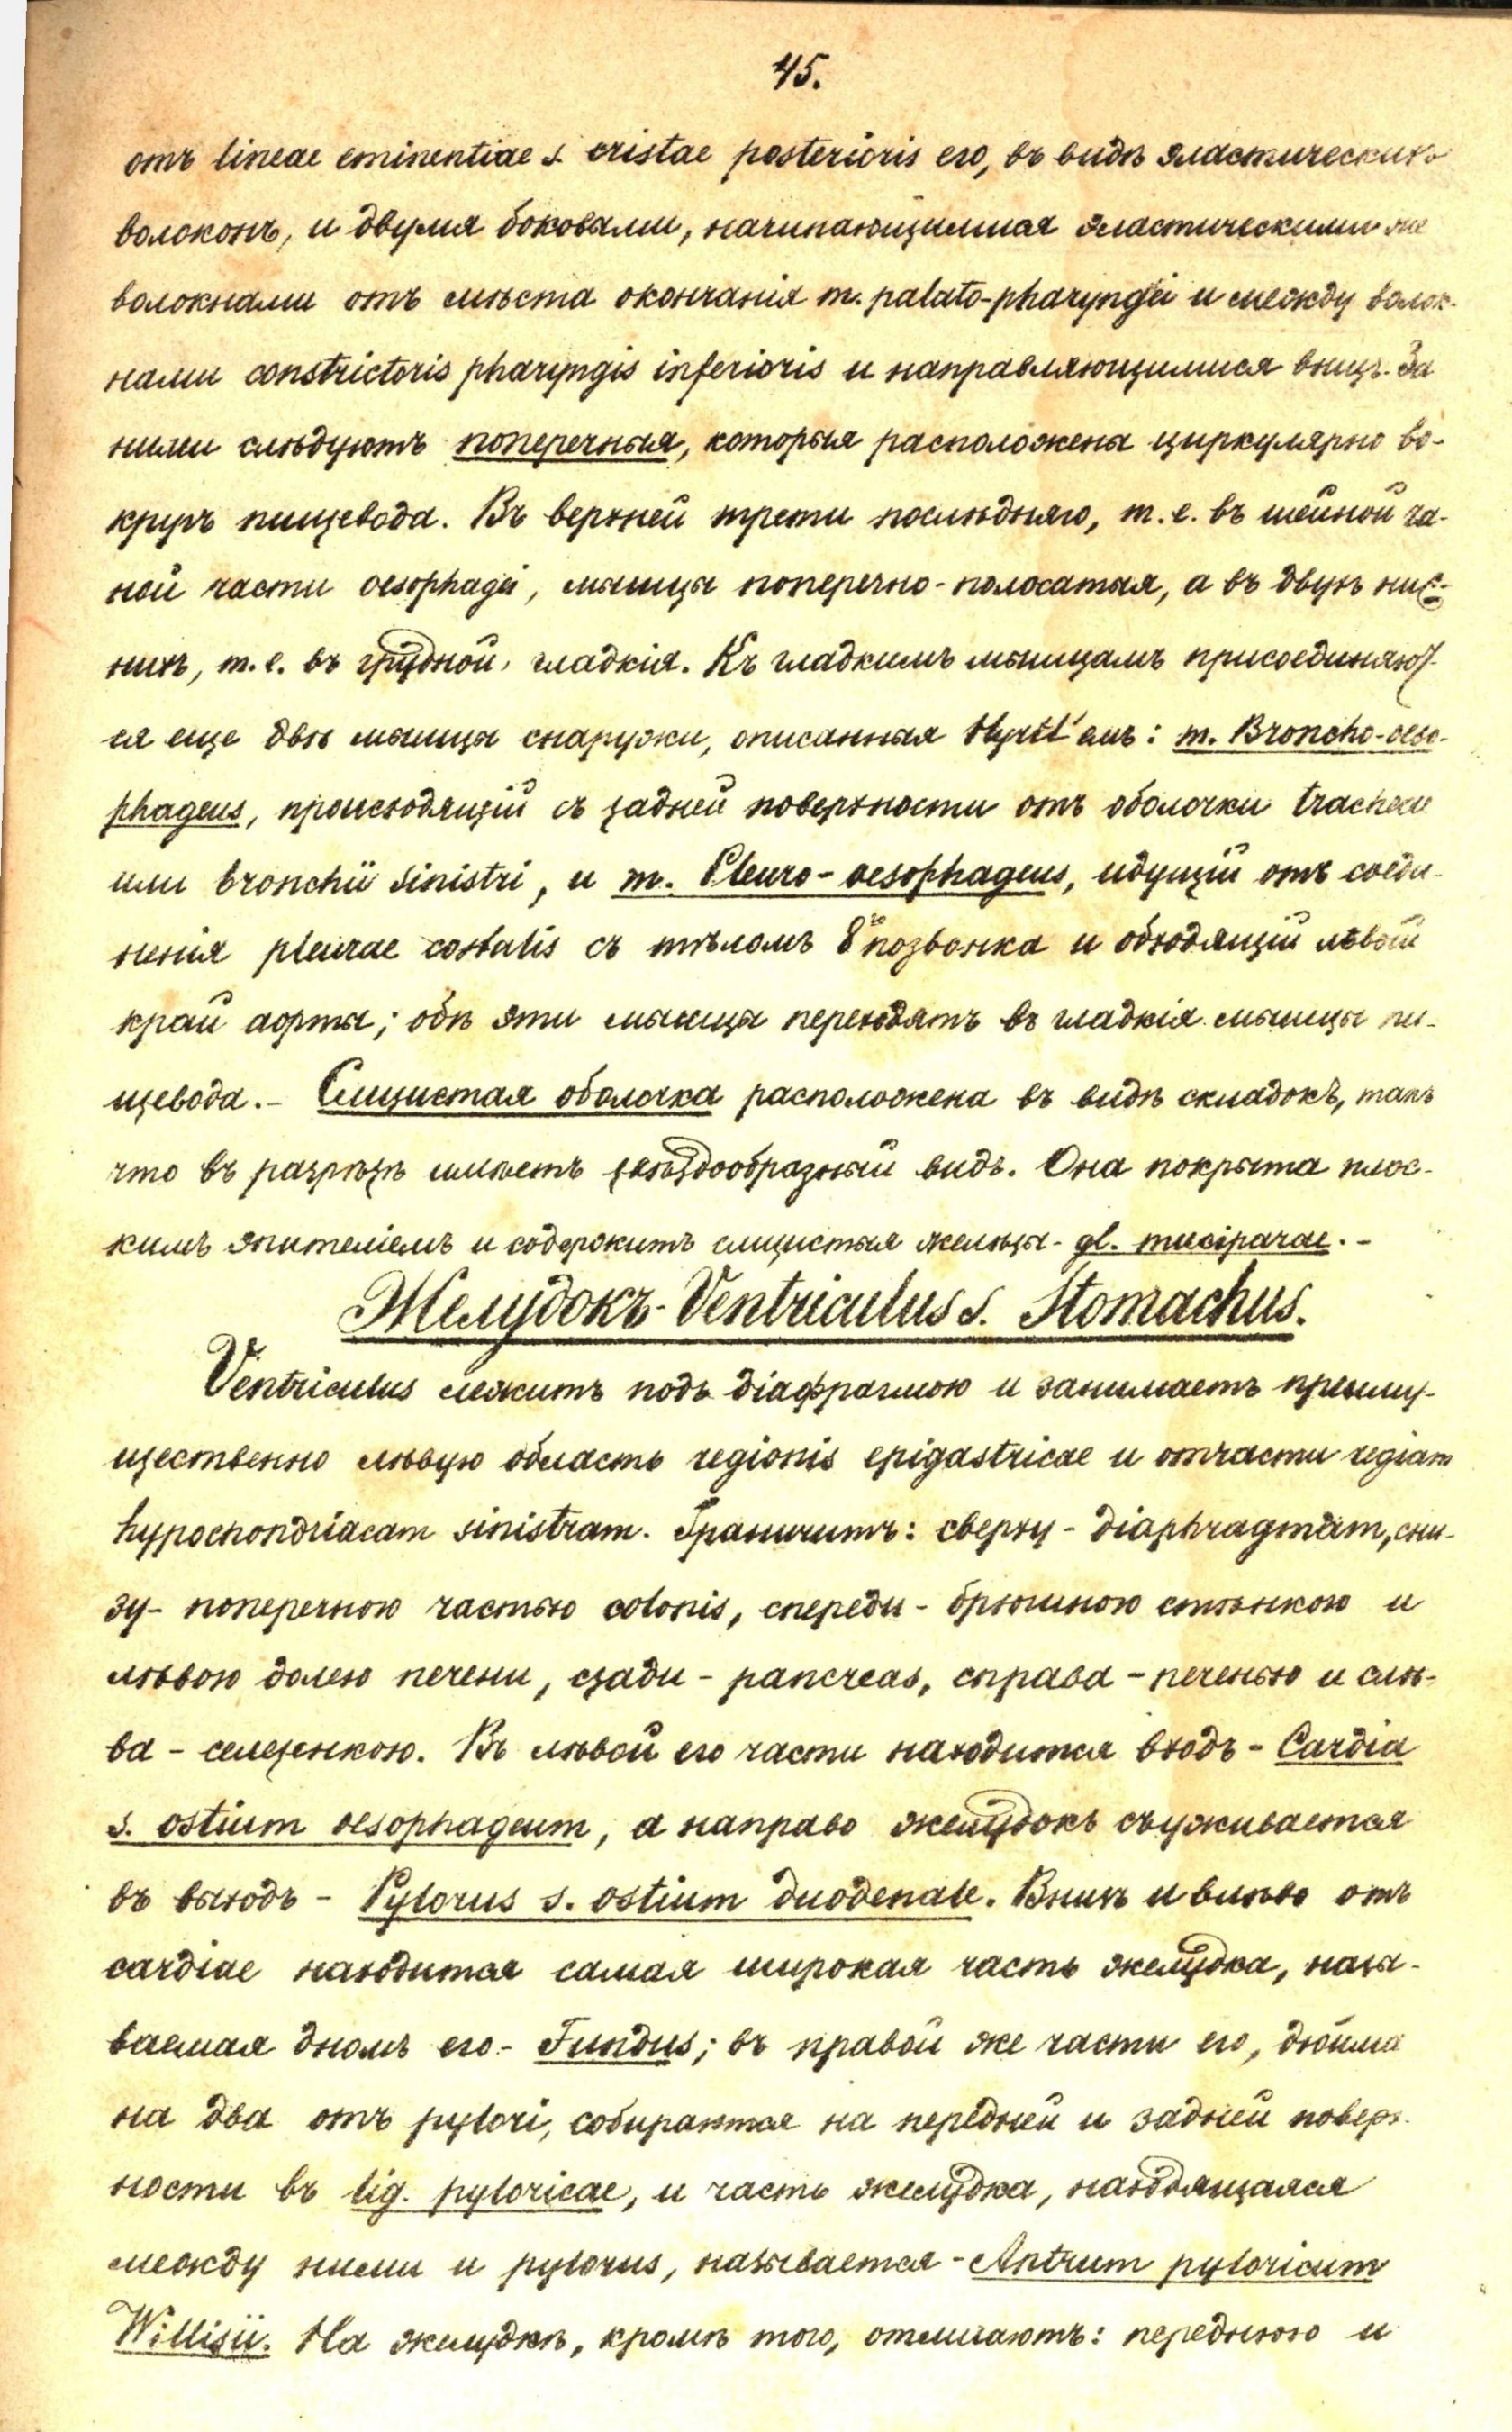 45.
отъ lineae eminentiae s. cristae posterioris его, въ видѣ эластическихъ
волоконъ, и двумя боковыми, начинающимися эластическими же
волокнами отъ мѣста окончанія m. palato-pharyngei и между волок-
нами constrictoris pharyngis inferioris и направляющимися внизъ. За
ними слѣдуютъ поперечныя, которыя расположены циркулярно во-
кругъ пищевода. Въ верхней трети послѣдняго, т.е. въ шейной ча-
ной части oesophagei, мышцы поперечно-полосатыя, а въ двухъ ниж-
нихъ, т.е. въ грудной, гладкія. Къ гладкимъ мышцамъ присоединяют-
ся еще двѣ мышцы снаружи, описанныя Hyrtl'емъ: m. Broncho-oeso-
phageus, происходящій съ задней поверхности отъ оболочки tracheae
или bronchii sinistri, и m. Pleuro-oesophageus, идущій отъ соеди-
ненія pleurae costalis съ тѣломъ 8го позвонка и обходящій лѣвый
край аорты; обѣ эти мышцы переходятъ въ гладкія мышцы пи-
щевода. - Слизистая оболочка расположена въ видѣ складокъ, такъ
что въ разрѣзѣ имѣетъ звѣздообразный видъ. Она покрыта плос-
кимъ эпителіемъ и содержитъ слизистыя железы - gl. muciparae. -
Желудокъ - Ventriculus s. Stomachus.
Ventriculus лежитъ подъ діафрагмою и занимаетъ преиму-
щественно лѣвую область regionis epigastricae и отчасти regiam
hypochondriacam sinistram. Граничитъ: сверху - diaphragmam, сни-
зу - поперечною частью colonis, спереди - брюшною стѣнкою и
лѣвою долею печени, сзади - pancreas, справа - печенью и слѣ-
ва - селезенкою. Въ лѣвой его части находится входъ - Cardia
s. ostium oesophageum, а направо желудокъ съуживается
въ выходъ - Pylorus s. ostium duodenale. Внизъ и влѣво отъ
cardiae находится самая широкая часть желудка, назы-
ваемая дномъ его - Fundus; въ правой же части его, дюйма
на два отъ pylori, собираются на передней и задней поверх-
ности въ lig. pyloricae, и часть желудка, находящаяся
между ними и pylorus, называется - Antrum pyloricum
Willisii. На желудкѣ, кромѣ того, отличаютъ: переднюю и